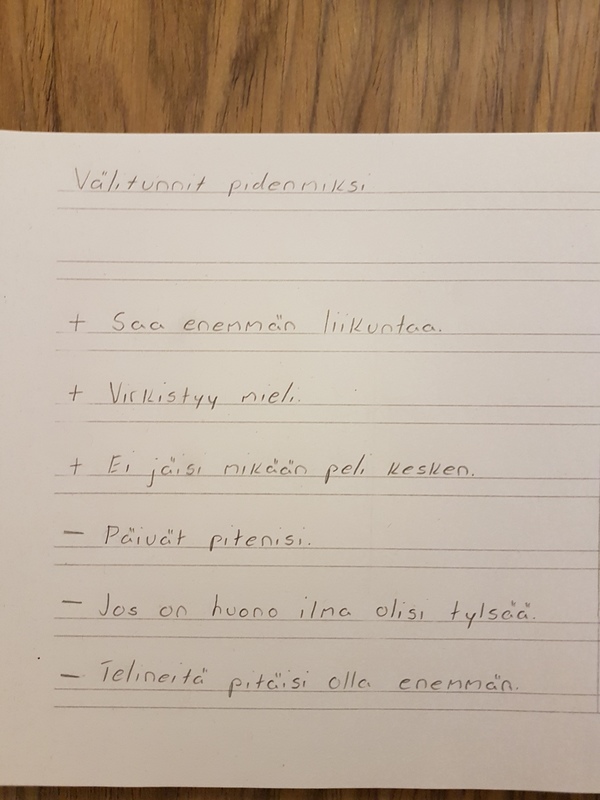 Välitunnit pidemmiksi
+ Saa enemmän liikuntaa.
+ Virkistyy mieli.
+ Ei jäisi mikään peli kesken.
− Päivät pitenisi.
− Jos on huono ilma olisi tylsää.
− Telineitä pitäisi olla enemmän.